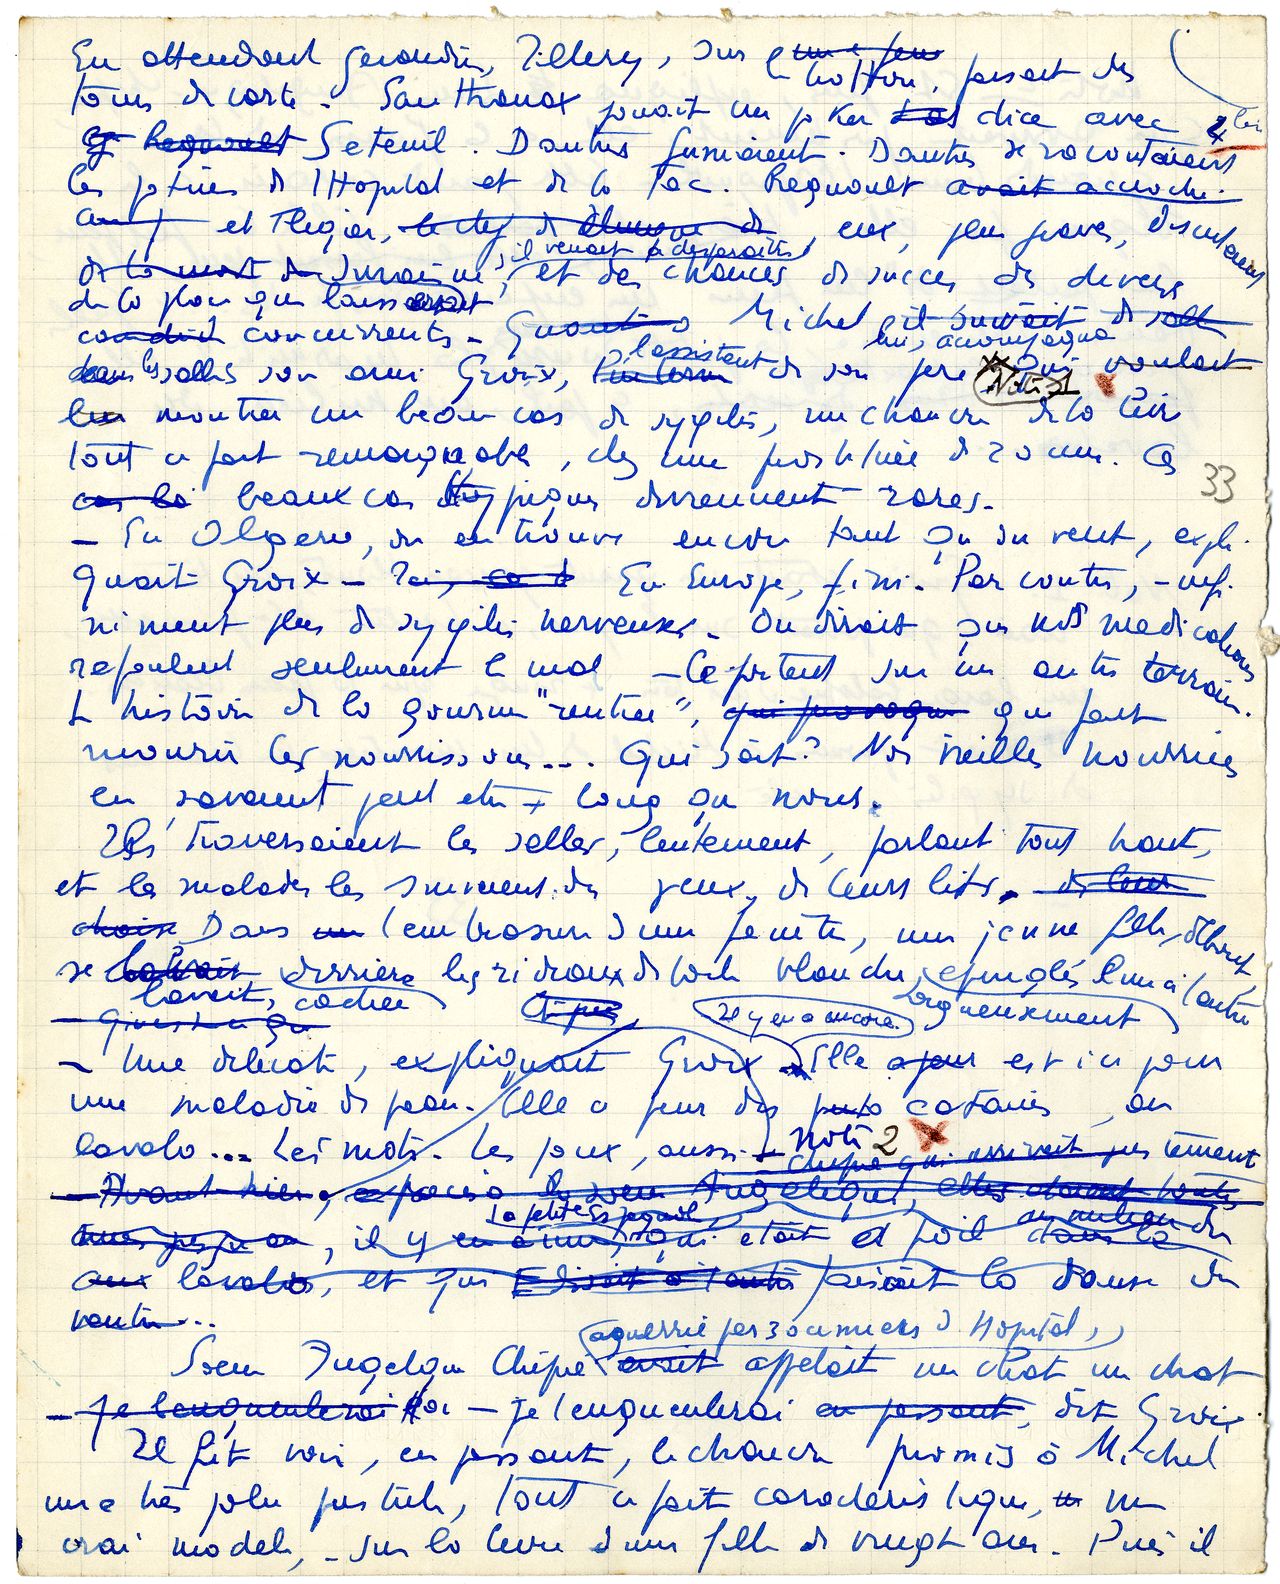 En attendant Géraudin, Tillery, sur le un feu chariot, faisait des
tours de carte. Santhanas jouait un poker dice avec
et Regnoult Seteuil. D'autres fumaient. D'autres se racontaient
les potins de l'Hôpital et de la Fac. Regnoult avait accroché
et Flegier, eux, plus graves, discutaient
de la mort de Suraisne, il venait de disparaître, et des chances de succès des divers
de la place qu'il laissait
concurrents. Quant à Michel, il suivait
lui, accompagna
dans les salles son ami Groix, l'interne l'assistant de son père Qui voulait
Note 1
lui montrer un beau cas de syphilis, un chancre de la lèvre
tout à fait remarquable, chez une prostituée de 20 ans. Ces
33
cas là beaux cas typiques deviennent rares.
– En Algérie, on en trouve encore tant qu'on veut, expli-
quait Groix – En Europe, fini. Par contre, – infi-
niment plus de syphilis nerveuses. On dirait que nos médications
refoulent seulement le mal – Le portent sur un autre terrain.
L'histoire de la gourme "rentrée", qui provoque qui fait
mourir les nourrissons... Qui sait? Nos vieilles nourrices
en savaient peut être + long que nous.
Ils traversaient les salles, lentement, parlant tout haut,
et les malades les suivaient des yeux, de leurs lits. de leur
choix Dans un l'embrasure d'une fenêtre, une jeune fille, debout,
se lavait derrière les rideaux de toile blanche, épinglés l'un à l'autre
lavait, cachée
Il y en a encore. soigneusement
– Une délicate, expliquait Groix – Elle a peur est ici pour
une maladie de peau. Elle a peur des cabinets, du
lavabo... Les mots. Les poux, aussi – Note 2
Chefné qui arrivait justement
– Avant hier, expliqua la soeur Angélique, elles étaient toutes
La petite Espagnole, au milieu des
nues jusqu'au, il y en a une, qui était à poil dans la
aux lavabos, et qui disait à l'autre faisait la danse du
ventre...
aguerrie par 30 années d'Hôpital,
Soeur Angélique Chefné avait appelait un chat un chat
– Je l'engueulerai – Je l'engueulerai en passant, dit Groix
Il fit voir, en passant, le chancre promis à Michel
une très jolie pustule, tout à fait caractéristique, un
vrai modèle, – sur la lèvre d'une fille de vingt ans. Puis il